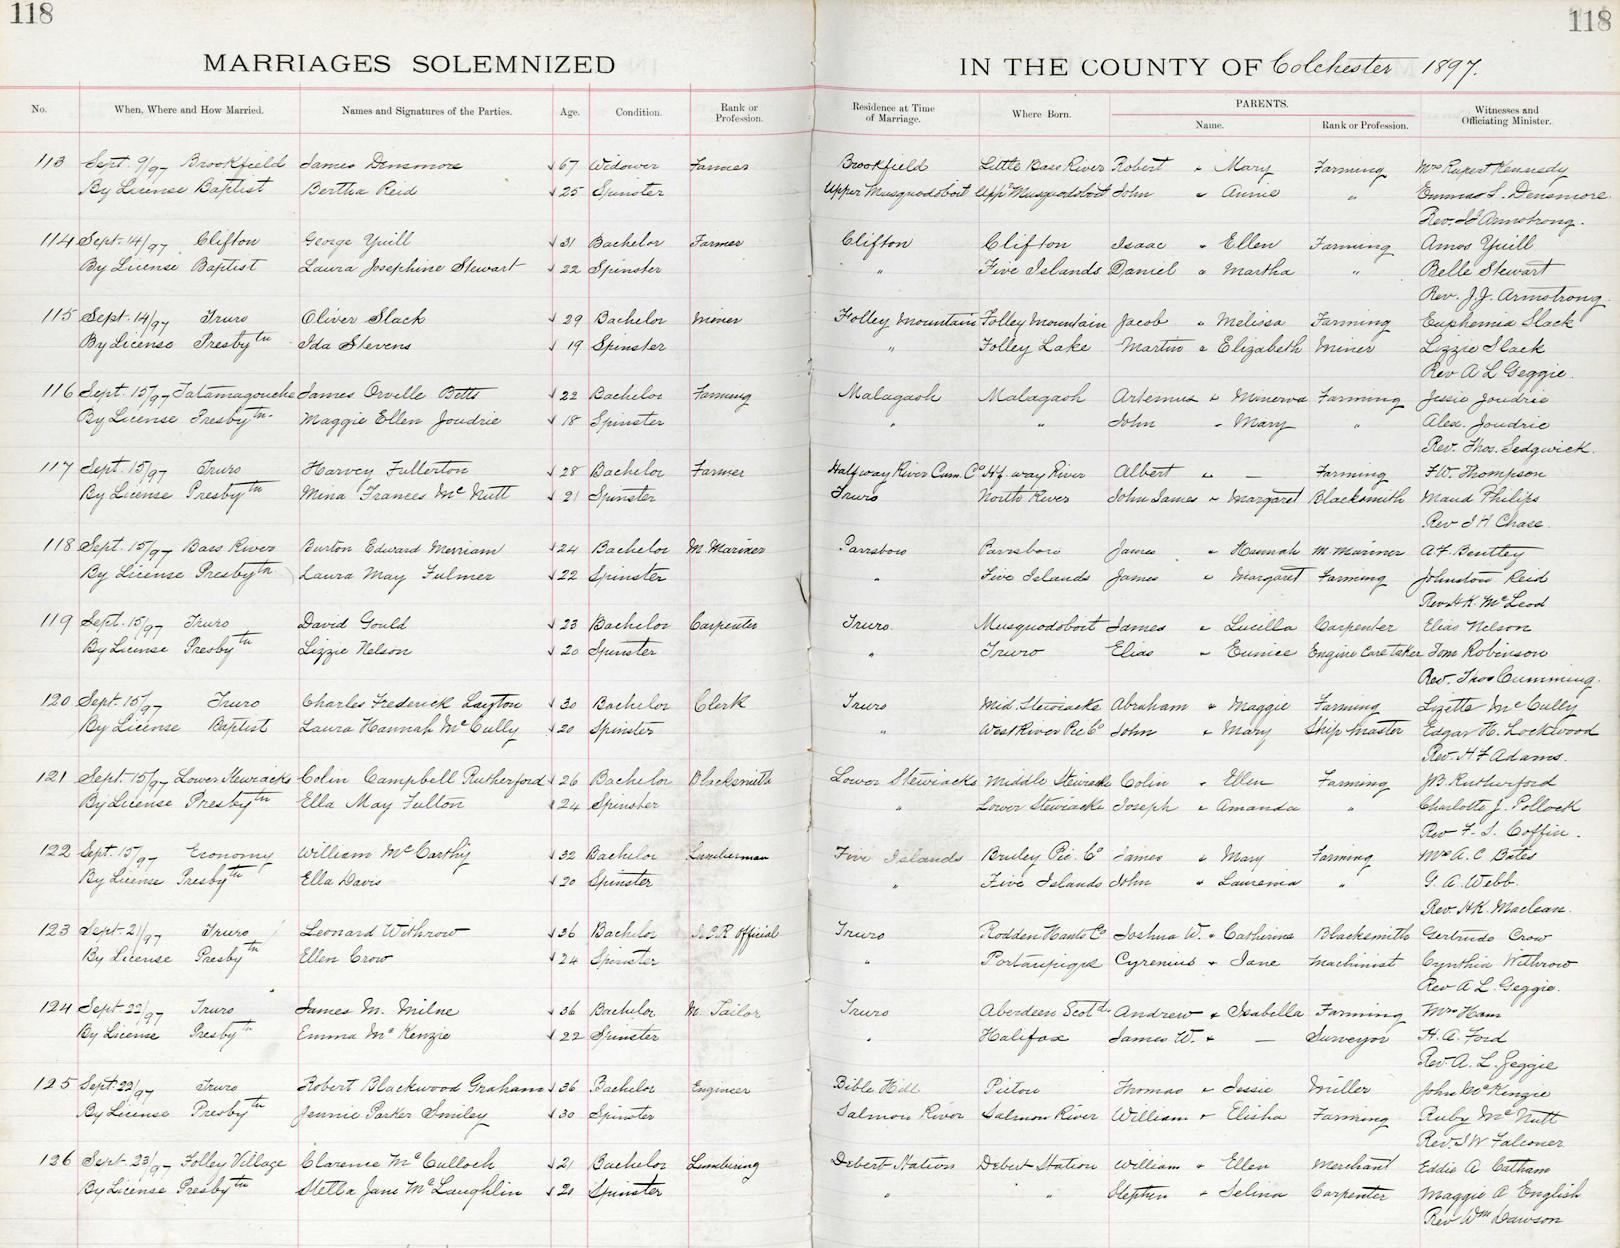 118 118
MARRIAGES SOLEMNIZED IN THE COUNTY OF Colchester 1897.
No. When, Where and How Married. Names and Signatures of the Parties. Age. Condition. Rank or Profession. Residence at Time of Marriage. Where Born. PARENTS. Name. Rank or Profession. Witnesses and Officiating Minister.
113 Sept. 9/97 Brookfield James Densmore 67 Widower Farmer Brookfield Little Bass River Robert & Mary Farming Mrs Rupert Kennedy
By License Baptist Bertha Reid 25 Spinster Upper Musquodoboit Upp Musquodoboit John & Annie " Emma S. Densmore.
Rev. J J Armstrong.
114 Sept. 14/97 Clifton George Yuill 31 Bachelor Farmer Clifton Clifton Isaac & Ellen Farming Amos Yuill
By License Baptist Laura Josephine Stewart 22 Spinster " Five Islands Daniel & Martha " Belle Stewart
Rev. J. J. Armstrong.
115 Sept. 14/97 Truro Oliver Slack 29 Bachelor Miner Folley Mountain Folley Mountain Jacob & Melissa Farming Euphemia Slack
By License Presbytn Ida Stevens 19 Spinster " Folley Lake Martin & Elizabeth Miner Lizzie Slack
Rev A L Geggie.
116 Sept. 15/97 Tatamagouche James Orville Betts 22 Bachelor Farming Malagash Malagash Artemus & Minerva Farming Jessie Joudrie
By License Presbytn. Maggie Ellen Joudrie 18 Spinster " " John & Mary " Alex. Joudrie
Rev. Thos. Sedgwick.
117 Sept. 15/97 Truro Harvey Fullerton 28 Bachelor Farmer Halfway River Cum. Co Hf. way River Albert & — Farming F.W. Thompson
By License Presbytn Mina Frances McNutt 21 Spinster Truro North River John James & Margaret Blacksmith Maud Philips
Rev J H Chase.
118 Sept. 15/97 Bass River Burton Edward Merriam 24 Bachelor M. Mariner Parrsboro Parrsboro James & Hannah M. Mariner A. F. Bentley
By License Presbytn. Laura May Fulmer 22 Spinster " Five Islands James & Margaret Farming Johnston Reid
Rev H K. McLeod
119 Sept. 15/97 Truro David Gould 23 Bachelor Carpenter Truro Musquodoboit James & Lucilla Carpenter Elias Nelson
By License Presbytn Lizzie Nelson 20 Spinster " Truro Elias & Eunice Engine Care taker Tom Robinson
Rev. Thos Cumming.
120 Sept. 15/97 Truro Charles Frederick Layton 30 Bachelor Clerk Truro Mid. Stewiacke Abraham & Maggie Farming Lizette McCully
By License Baptist Laura Hannah McCully 20 Spinster " West River Pic Co John & Mary Ship Master Edgar H. Lockwood
Rev. H F Adams.
121 Sept. 15/97 Lower Stewiacke Colin Campbell Rutherford 26 Bachelor Blacksmith Lower Stewiacke Middle Stewiacke Colin & Ellen Farming J B. Rutherford
By License Presbytn Ella May Fulton 24 Spinster " Lower Stewiacke Joseph & Amanda " Charlotte J. Pollock
Rev F. S. Coffin.
122 Sept. 15/97 Economy William McCarthy 32 Bachelor Lumberman Five Islands Pic. Co James & Mary Farming Mrs A. C Bates
By License Presbytn Ella Davis 20 Spinster " Five Islands John & Laurenia " G. A. Webb.
Rev. H K. Maclean.
123 Sept 21/97 Truro Leonard Withrow 36 Bachelor I.C.R official Truro Rodden Hants Co Joshua W. & Catherine Blacksmith Gertrude Crow
By License Presbytn Ellen Crow 24 Spinster " Portaupique Cyrenius & Jane Machinist Cynthia Withrow
Rev A L. Geggie.
124 Sept 22/97 Truro James M. Milne 36 Bachelor M. Tailor Truro Aberdeen Scotd. Andrew & Isabella Farming Mrs Ham
By License Presbytn Emma McKenzie 22 Spinster " Halifax James W. & — Surveyor H. A. Ford
Rev A. L. Geggie
125 Sept. 22/97 Truro Robert Blackwood Graham 36 Bachelor Engineer Bible Hill Pictou Thomas & Jessie Miller John McKenzie
By License Presbytn Jennie Parker Smiley 30 Spinster Salmon River Salmon River William & Elisha Farming Ruby McNutt
Rev. J W Falconer
126 Sept. 23/97 Folley Village Clarence McCulloch 21 Bachelor Lumbering Debert Station Debert Station William & Ellen Merchant Eddie A
By License Presbytn Stella Jane McLaughlin 20 Spinster " " Stephen & Selina Carpenter Maggie A English
Rev Wm Dawson